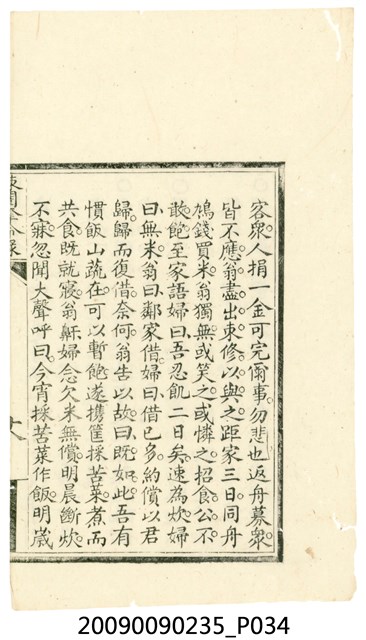 客衆人捐一金可完爾事勿悲也返舟募衆
皆不應翁盡出束修以與之距家三日同舟
鳩錢買米翁獨無或笑之或憐之招食公不
敢飽至家語婦曰吾忍飢二日矣速為炊婦
曰無米翁曰鄰家借婦曰借已多約償以君
歸歸而復借奈何翁告以故曰既如此吾有
慣飯山蔬在可以暫飽遂携筐採苦菜煮而
共食既就寢翁鼾婦念欠米無償明晨斷炊
不寐忽聞大聲呼曰今宵採苦菜作飯明歲
20090090235_P034